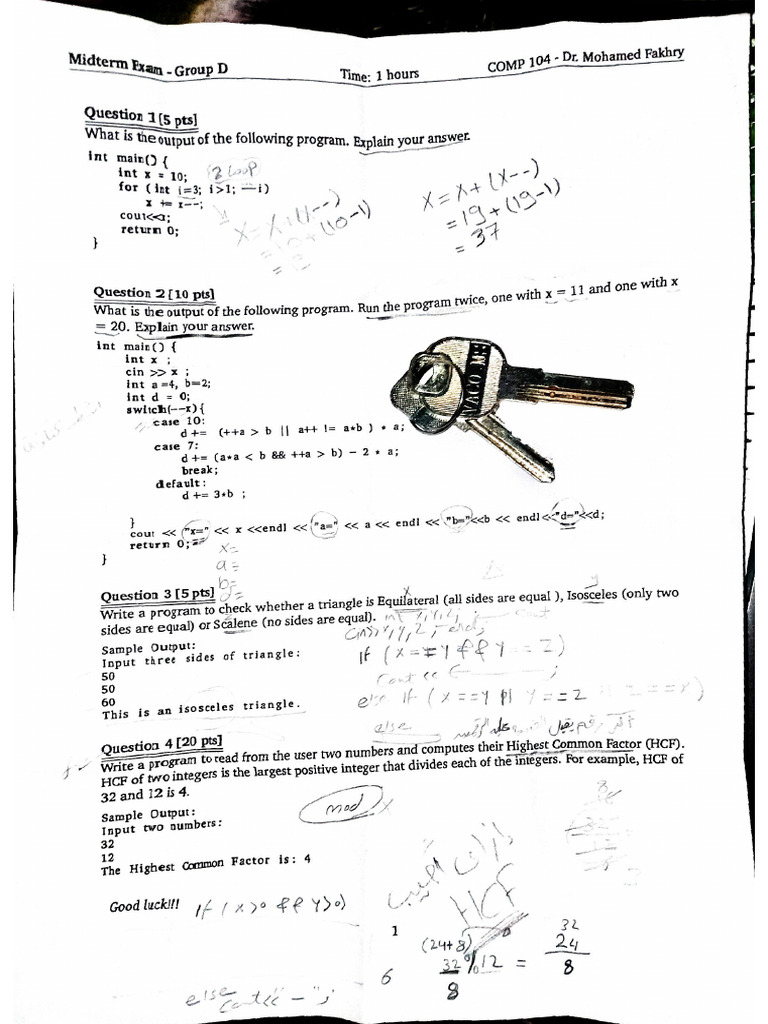 Midterm Exam - Group D
Time: 1 hours
COMP 104 - Dr. Mohamed Fakhry
Question 1 [5 pts]
What is the output of the following program. Explain your answer.
int main() {
int x = 10;
2 loop
for (int i=3; i>1; --i)
x += x--;
cout<<x;
return 0;
}
x = x + (x--)
= 19 + (19-1)
= 37
Question 2 [10 pts]
What is the output of the following program. Run the program twice, one with x = 11 and one with x
= 20. Explain your answer.
int main() {
int x ;
cin >> x ;
int a =4, b=2;
int d = 0;
switch(--x){
case 10:
d += (++a > b || a++ != a*b ) * a;
case 7:
d += (a*a < b && ++a > b) - 2 * a;
break;
default:
d += 3*b ;
}
cout << "x=" << x <<endl << "a=" << a << endl << "b="<<b << endl<<"d="<<d;
return 0;
}
x=
a=
b=
d=
VACO
Question 3 [5 pts]
Write a program to check whether a triangle is Equilateral (all sides are equal ), Isosceles (only two
sides are equal) or Scalene (no sides are equal).
Sample Output:
Input three sides of triangle:
50
50
60
This is an isosceles triangle.
else
Question 4 [20 pts]
Write a program to read from the user two numbers and computes their Highest Common Factor (HCF).
HCF of two integers is the largest positive integer that divides each of the integers. For example, HCF of
32 and 12 is 4.
Sample Output:
Input two numbers:
32
12
The Highest Common Factor is: 4
mod
HCF
Good luck!!!
If ( x>0 && y>0)
1
(24+8)
32 % 12 =
8
32
24
8
6
else